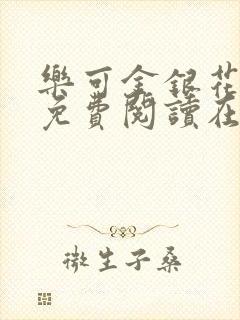 樂可金銀花
免費閱讀在
微生子桑